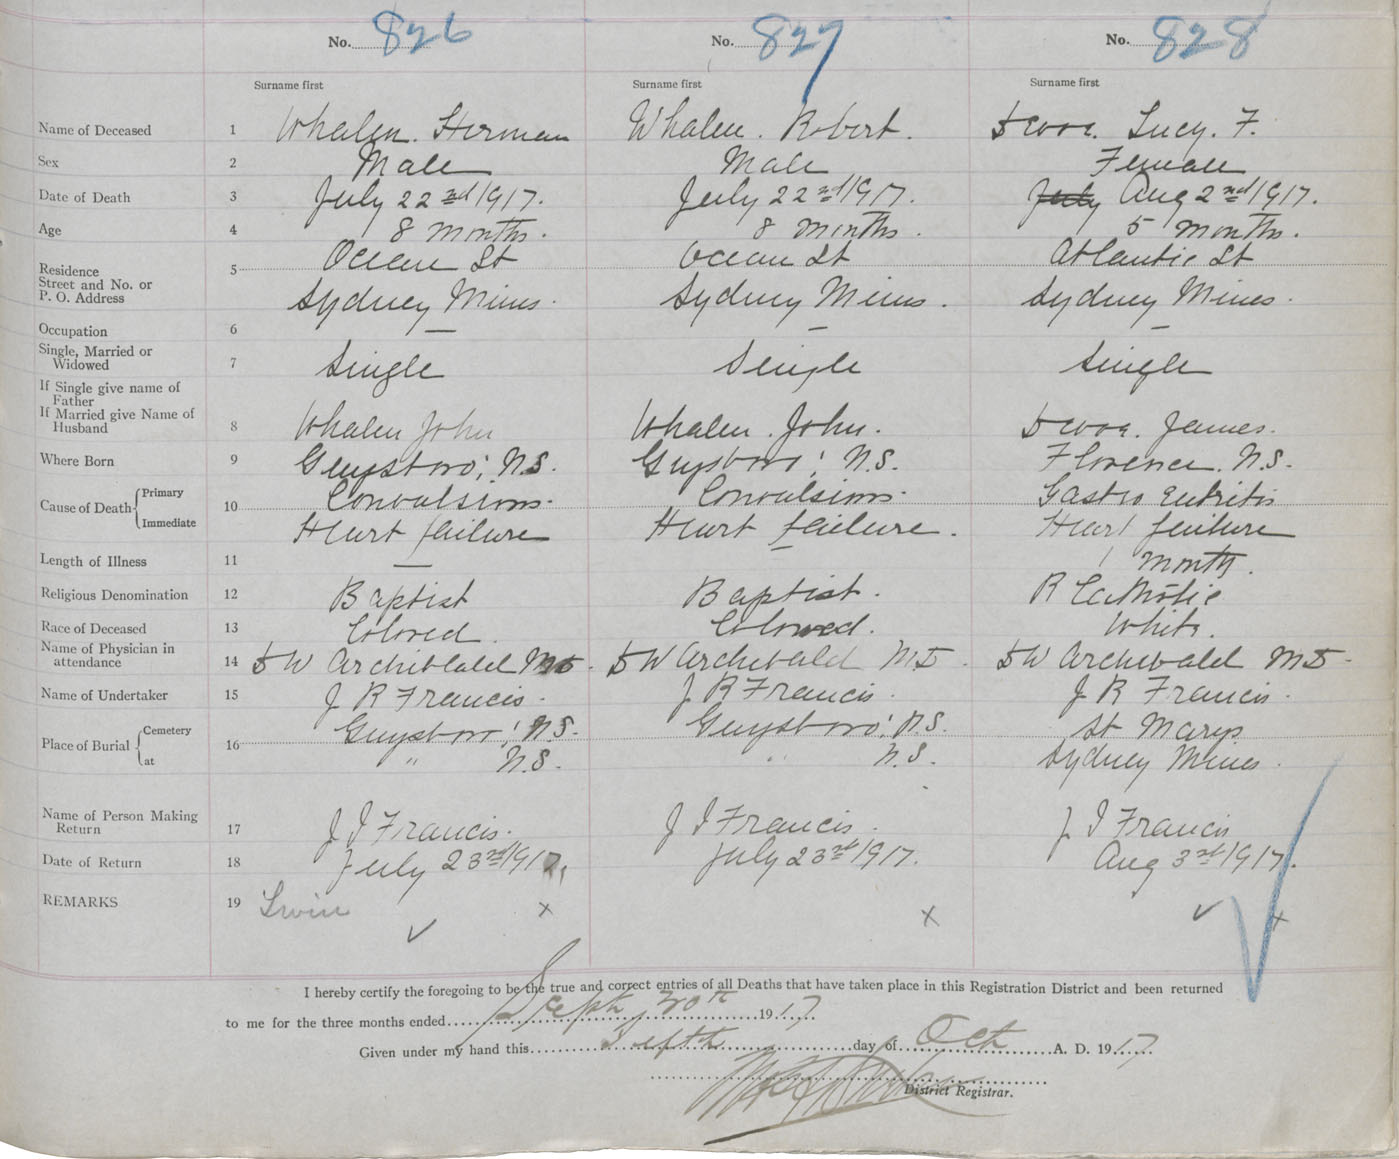 No. 826 No. 827 No. 828
Surname first Surname first Surname first
Name of Deceased 1 Whalen. Herman Whalen. Robert. Lucy. F.
Sex 2 Male Male Female
Date of Death 3 July 22nd 1917. July 22nd 1917. July Aug 2nd 1917.
Age 4 8 months. 8 months. 5 months.
Residence
Street and No. or
P. O. Address
5 Ocean St Ocean St Atlantic St
Sydney Mines. Sydney Mines. Sydney Mines.
Occupation 6 — — —
Single, Married or
Widowed
7 Single Single Single
If Single give name of
Father
If Married give Name of
Husband
8 Whalen John Whalen. John. James.
Where Born 9 Guysboro', N.S. Guysboro', N.S. Florence. N.S.
Cause of Death Primary
Immediate
10 Convulsions. Convulsions. Gastro Entritis
Heart failure Heart failure. Heart failure
Length of Illness 11 — — 1 month.
Religious Denomination 12 Baptist Baptist. R Catholic
Race of Deceased 13 Colored. Colored. White.
Name of Physician in
attendance
14 D W Archibald MD. D W Archibald MD. D W Archibald MD.
Name of Undertaker 15 J R Francis. J R Francis. J R Francis.
Place of Burial Cemetery
at
16 Guysboro', N.S. Guysboro', N.S. St Marys
" N.S. " N.S. Sydney Mines.
Name of Person Making
Return
17 J I Francis. J I Francis. J I Francis
Date of Return 18 July 23rd 1917. July 23rd 1917. Aug 3rd 1917.
REMARKS 19 x x x
I hereby certify the foregoing to be the true and correct entries of all Deaths that have taken place in this Registration District and been returned
to me for the three months ended Sept 30th 1917
Given under my hand this Fifth day of Oct A. D. 1917
District Registrar.